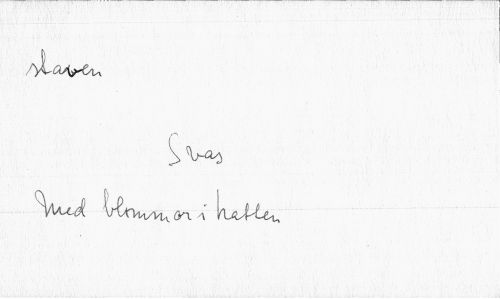 staven
Svas
Med blommor i hatten